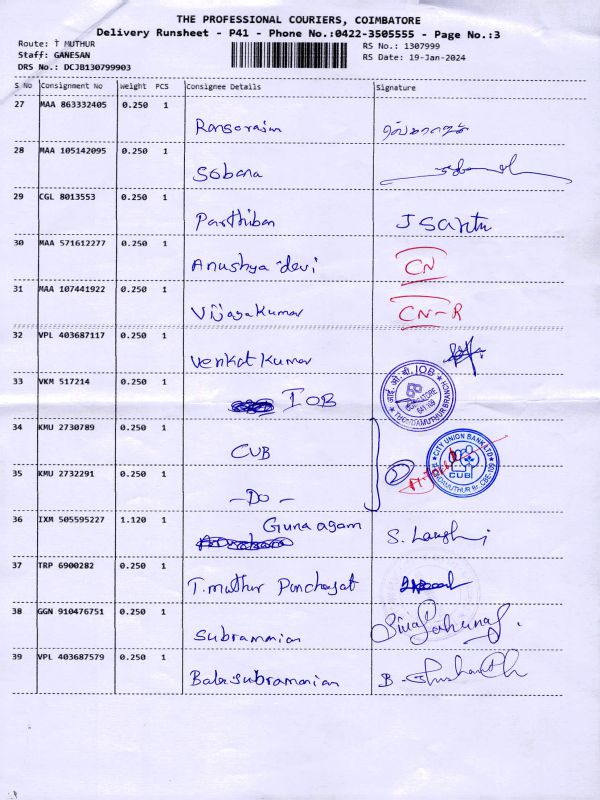 THE PROFESSIONAL COURIERS, COIMBATORE
Delivery Runsheet - P41 - Phone No.:0422-3505555 - Page No.:3
Route: T MUTHUR
Staff: GANESAN
DRS No.: DCJB130799903
RS No.: 1307999
RS Date: 19-Jan-2024
S No Consignment No Weight PCS Consignee Details Signature
27 MAA 863332405 0.250 1
28 MAA 105142095 0.250 1 Sobana
29 CGL 8013553 0.250 1 Parthiban J Santu
30 MAA 571612277 0.250 1 Anushya devi CN
31 MAA 107441922 0.250 1 Vijayakumar CN-R
32 VPL 403687117 0.250 1 Venkat Kumar
33 VKM 517214 0.250 1 IOB
34 KMU 2730789 0.250 1 CUB
35 KMU 2732291 0.250 1 - Do -
36 IXM 505595227 1.120 1 Guna agam
37 TRP 6900282 0.250 1 T. muthur Panchayat
38 GGN 910476751 0.250 1 Subramanian
39 VPL 403687579 0.250 1 Balasubramanian
आई. ओ. बी. IOB
COIMBATORE
THONDAMUTHUR BRANCH
CITY UNION BANK LTD
CUB
THONDAMUTHUR Br. CBE-109
2